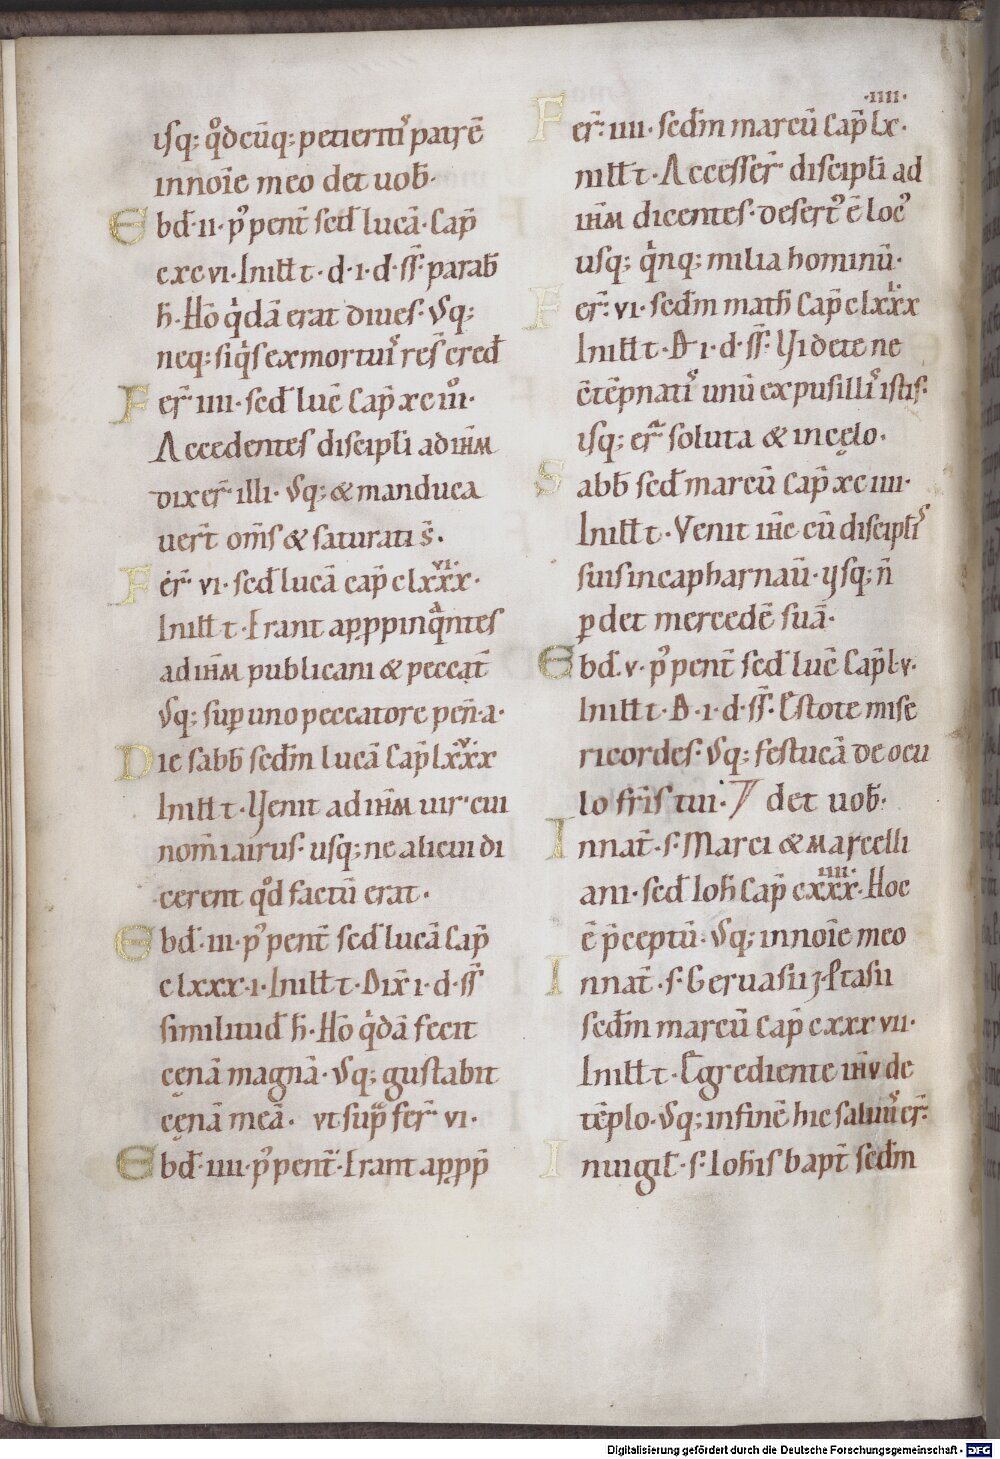 usq; qdcūq; petieritis patrē
in noīe meo det uob̄·
Ebd̄·ii· p̾ pent̄ sed̄ lucā· Cap̄
cxcvi· Initt̄ t̄· d·i·d·ss̄· parab̄
h̄· Hō q̇dā erat diues· Vsq;
neq; siq̇s ex mortuis res̄ cred̄
Fer̄· iiii· sed̄ luc̄ Cap̄ xciii·
Accedentes discipl̄i ad ih̄m
dixer̄ illi· Vsq; & manduca
uer̄t om̄s & saturati s̄·
Fer̄· vi· sed̄ lucā cap̄ clxxxvi·
Initt̄ t̄· Erant appropinq̇ntes
ad ih̄m publicani & peccat̄
Vsq; sup uno peccatore pen̄·a·
Die sabb̄ sedm̄ lucā Cap̄ lxxxv
Initt̄ t̄· Venit ad ih̄m uir cui
nom̄ iairus· usq; ne alicui di
cerent qd̊ factū erat·
Ebd̄·iii· p̾ pent̄ sed̄ lucā Cap̄
clxxx·i· Initt̄ t̄· Dix̄ i·d·ss̄
similitud̄ h̄· Hō q̇dā fecit
cęnā magnā· Vsq; gustabit
cęnā meā· vt sup̄ fer̄ vi·
Ebd̄·iiii· p̾ pent̄· Erant app̱p̄
Fer̄· iiii· sedm̄ marcū Cap̄ lxiiii·
nitt̄ t̄· Accesser̄ discipl̄i ad
ih̄m dicentes· desert̾ ē loc̾
usq; q̇nq; milia hominū·
Fer̄· vi· sedm̄ math̄ Cap̄ clxxxii
Initt̄ t̄· D·i·d·ss̄· Videte ne
cōtēpnatis unū ex pusillis istis·
usq; er̄ soluta & in cęlo·
Sabb̄ sed̄ marcū Cap̄ xciiii·
Initt̄ t̄· Venit ih̄c cū discipl̄is
suis in capharnaū· ysq; n̄
p̱det mercedē suā·
Ebd̄·v· p̾ pent̄ sed̄ luc̄ Cap̄ lv·
Initt̄ t̄· D·i·d·ss̄· Estote mise
ricordes· Vsq; festucā de ocu
lo fr̄is tui· det uob̄·
In nat̄·s· Marci & Marcelli
ani· sed̄ Ioh̄ Cap̄ cxxxiiii· Hoc
ē p̄ceptū· Vsq; in noīe meo
In nat̄·s· Geruasii ⁊ p̱tasii
sedm̄ marcū Cap̄ cxxxvii·
Initt̄ t̄· Egrediente ih̄v de
tēplo· Vsq; in finē hic saluus er̄·
In uigil̄·s· Ioh̄is bapt̄ sedm̄
Digitalisierung gefördert durch die Deutsche Forschungsgemeinschaft - DFG